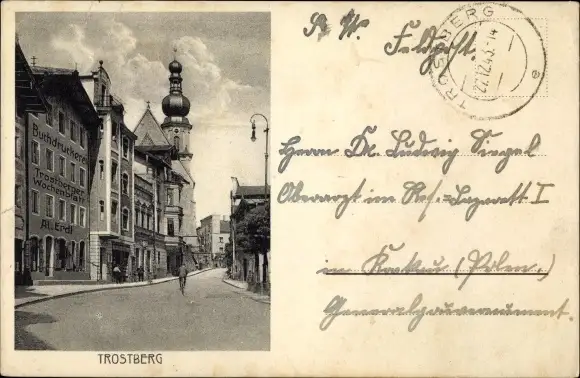 Feldpost.
TROSTBERG
27.12.43.-14
Buchdruckerei
Trostberger
Wochenblatt
Al. Erdl
Herrn Dr. Ludwig Siegel
Oberarzt im Res.-Lazarett I
in Krakau (Polen.)
Generalgouvernement.
TROSTBERG